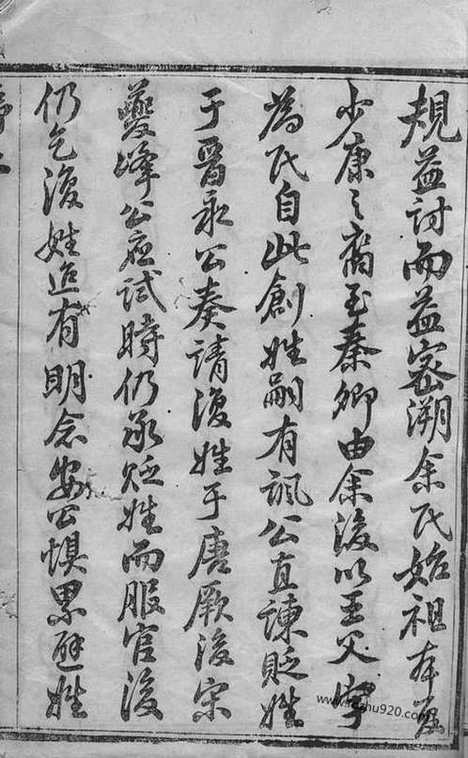 規益討而益密溯余氏始祖本夏
少康之裔至秦卿由余後以王父字
為氏自此創姓嗣有諷公直諫貶姓
于晋永公奏請復姓于唐厥後宋
夔峰公應試時仍承貶姓而服官後
仍乞復姓迨有明念安公懼累避姓